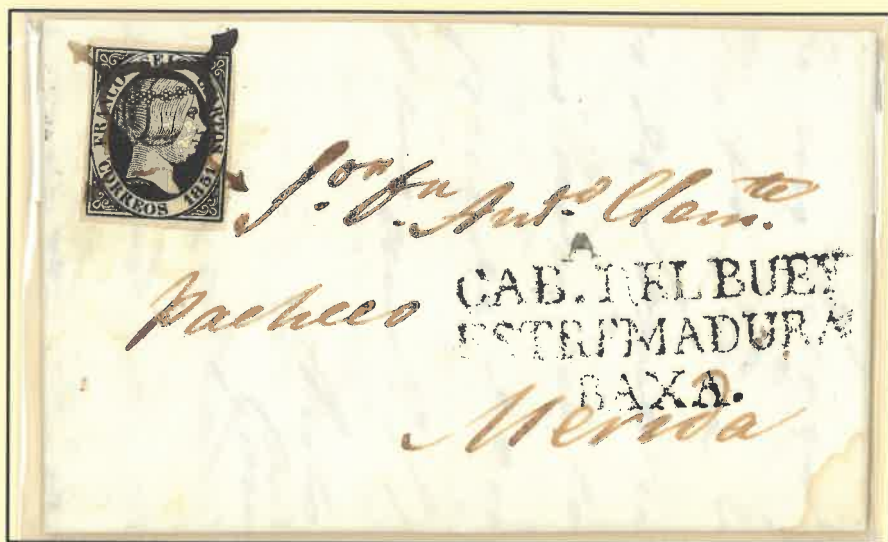 FRANCO SEI CUARTOS
CORREOS 1851
S.or Dn Anto. Clemte.
Pacheco
A
CAB. DEL BUEY
ESTREMADURA
BAXA.
Merida